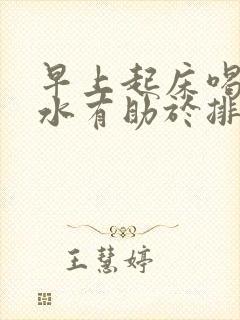 早上起床喝
水有助於排
王慧婷